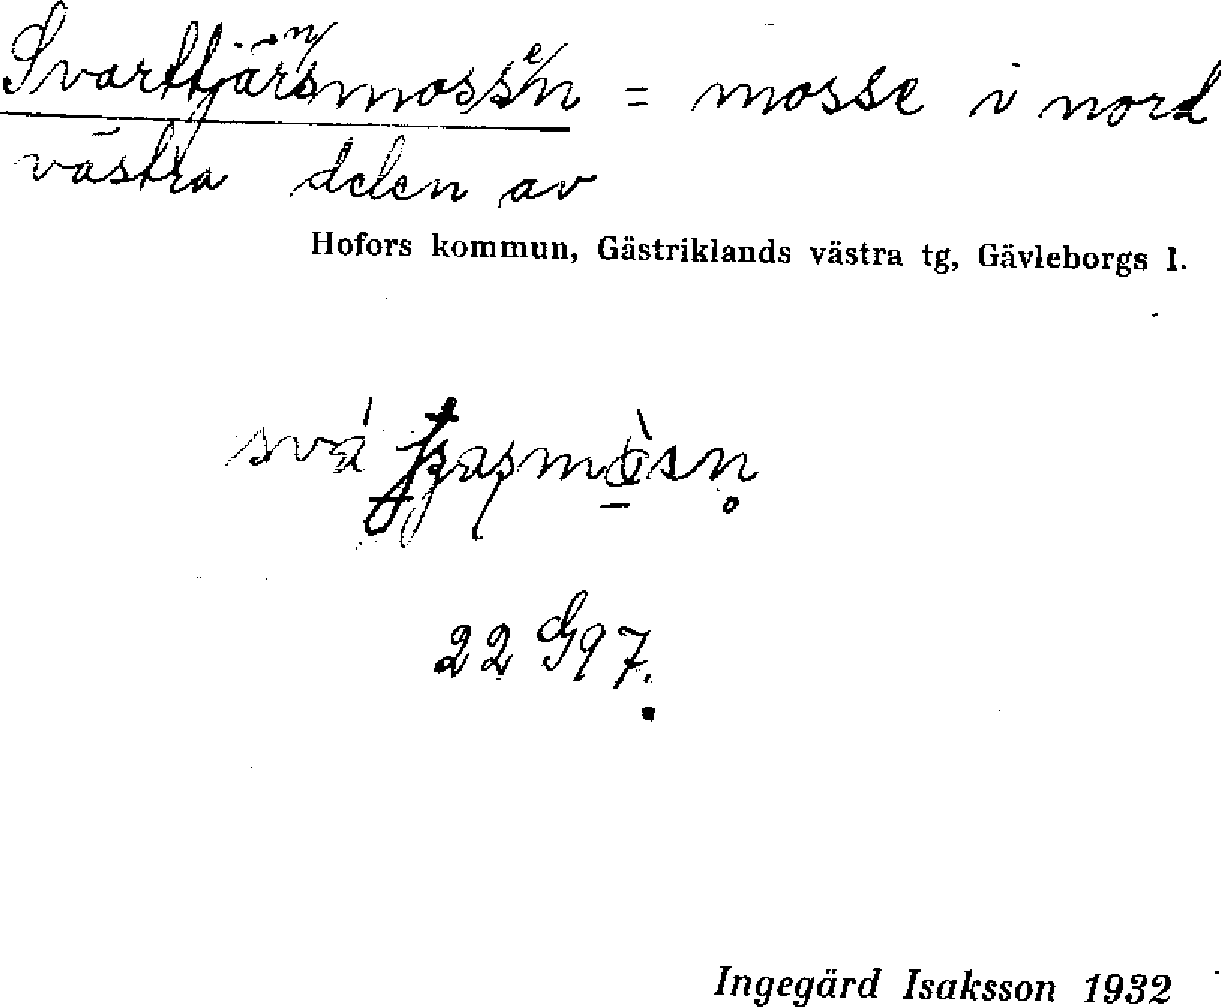 Svarttjärnsmossen = mosse i nord
västra delen av
Hofors kommun, Gästriklands västra tg, Gävleborgs l.
22 G97.
Ingegärd Isaksson 1932